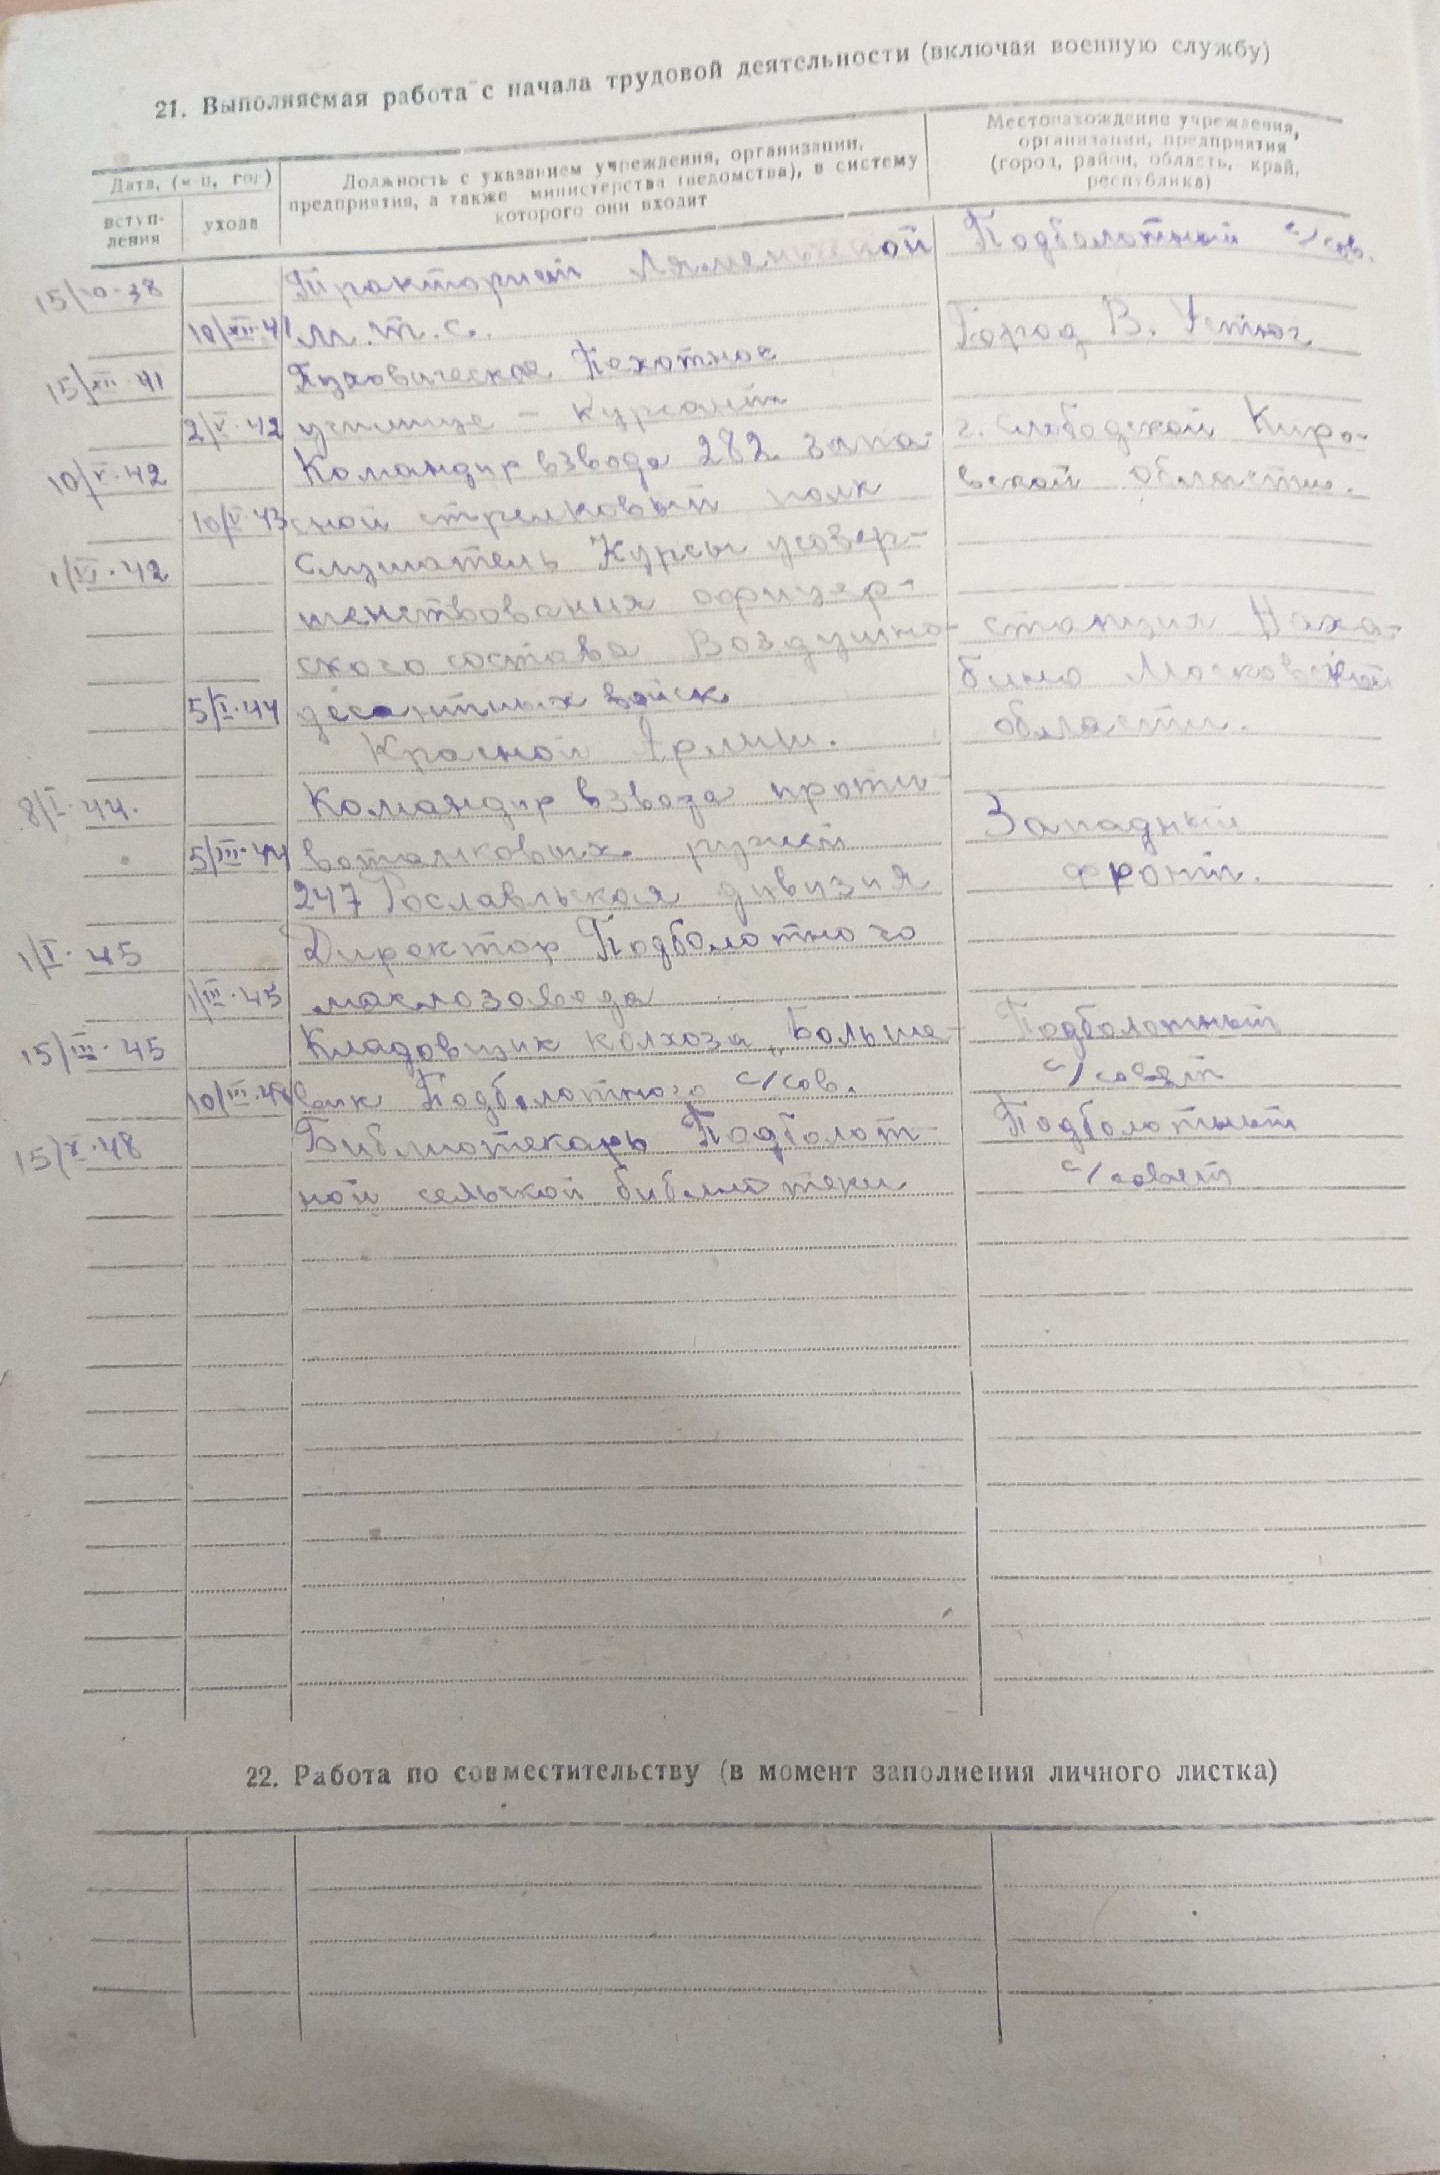 21. Выполняемая работа с начала трудовой деятельности (включая военную службу)
Дата, (м-ц, год)
вступ-
ления
ухода
Должность с указанием учреждения, организации,
предприятия, а также министерства (ведомства), в систему
которого они входят
Местонахождение учреждения,
организации, предприятия
(город, район, область, край,
республика)
15/10-38 Тракторист Ляменьгской Подболотный с/сов.
10/XII-41 м.т.с.
Город В. Устюг
15/XII-41 Пуховическое Пехотное
2/V-42 училище - курсант
10/V-42 Командир взвода 282 запа- г. Слободской Киро-
10/V-43 сной стрелковый полк вской области.
1/VI-42 Слушатель Курсы усовер-
шенствования офицер-
ского состава Воздушно- станция Наха-
5/I-44 десантных войск бино Московской
Красной Армии. области.
8/I-44. Командир взвода проти-
5/III-44 вотанковых ружей Западный
247 Рославльская дивизия фронт.
1/I-45 Директор Подболотного
1/III-45 маслозавода
15/III-45 Кладовщик колхоза „Больше- Подболотный
10/III-48 вик Подболотного с/сов. с/совет
15/X-48 Библиотекарь Подболот- Подболотный
ной сельской библиотеки с/совет
22. Работа по совместительству (в момент заполнения личного листка)